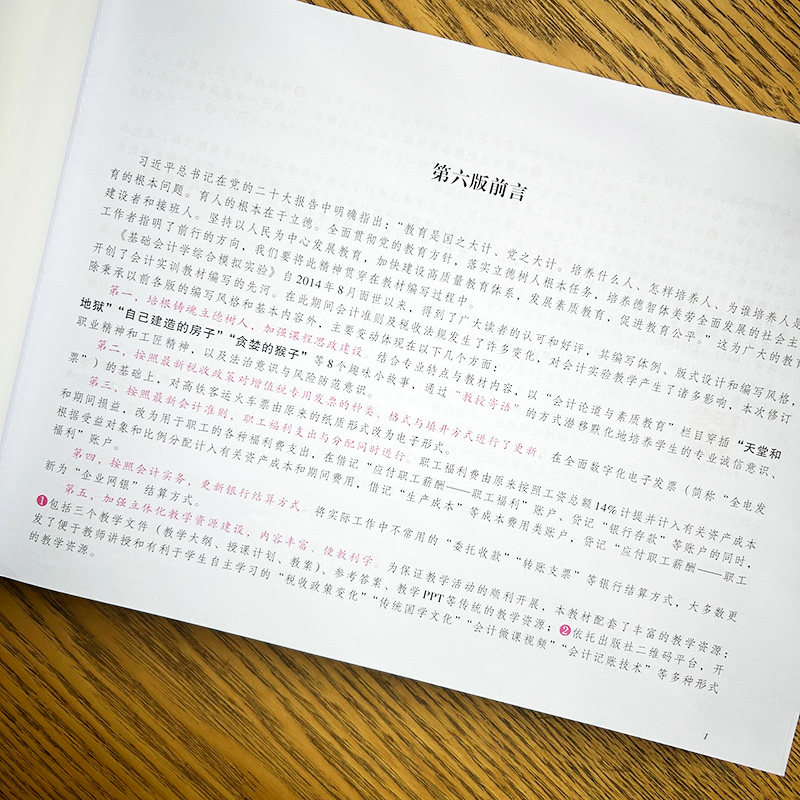 第六版前言
习近平总书记在党的二十大报告中明确指出：“教育是国之大计、党之大计。培养什么人、怎样培养人、为谁培养人是
育的根本问题。育人的根本在于立德。全面贯彻党的教育方针，落实立德树人根本任务，培养德智体美劳全面发展的社会主
建设者和接班人。坚持以人民为中心发展教育，加快建设高质量教育体系，发展素质教育，促进教育公平。”这为广大的教育
工作者指明了前行的方向，我们要将此精神贯穿在教材编写过程中。
《基础会计学综合模拟实验》自2014年8月面世以来，得到了广大读者的认可和好评，其编写体例、版式设计和编写风格，
开创了会计实训教材编写的先河。在此期间会计准则及税收法规发生了许多变化，对会计实验教学产生了诸多影响，本次修订
除秉承以前各版的编写风格和基本内容外，主要变动体现在以下几个方面：
第一，培根铸魂立德树人，加强课程思政建设。结合专业特点与教材内容，以“会计论道与素质教育”栏目穿插“天堂和
地狱”“自己建造的房子”“贪婪的猴子”等8个趣味小故事，通过“教授寄语”的方式潜移默化地培养学生的专业诚信意识、
职业精神和工匠精神，以及法治意识与风险防范意识。
第二，按照最新税收政策对增值税专用发票的种类、格式与填开方式进行了更新。在全面数字化电子发票（简称“全电发
票”）的基础上，对高铁客运火车票由原来的纸质形式改为电子形式。
第三，按照最新会计准则，职工福利支出与分配同时进行。职工福利费由原来按照工资总额14%计提并计入有关资产成本
和期间损益，改为用于职工的各种福利费支出，在借记“应付职工薪酬——职工福利”账户、贷记“银行存款”等账户的同时，
根据受益对象和比例分配计入有关资产成本和期间费用，借记“生产成本”等成本费用类账户，贷记“应付职工薪酬——职工
福利”账户。
第四，按照会计实务，更新银行结算方式。将实际工作中不常用的“委托收款”“转账支票”等银行结算方式，大多数更
新为“企业网银”结算方式。
第五，加强立体化教学资源建设，内容丰富、使教利学。为保证教学活动的顺利开展，本教材配套了丰富的教学资源：
❶包括三个教学文件（教学大纲、授课计划、教案）、参考答案、教学PPT等传统的教学资源；❷依托出版社二维码平台，开
发了便于教师讲授和有利于学生自主学习的“税收政策变化”“传统国学文化”“会计微课视频”“会计记账技术”等多种形式
的教学资源。
1